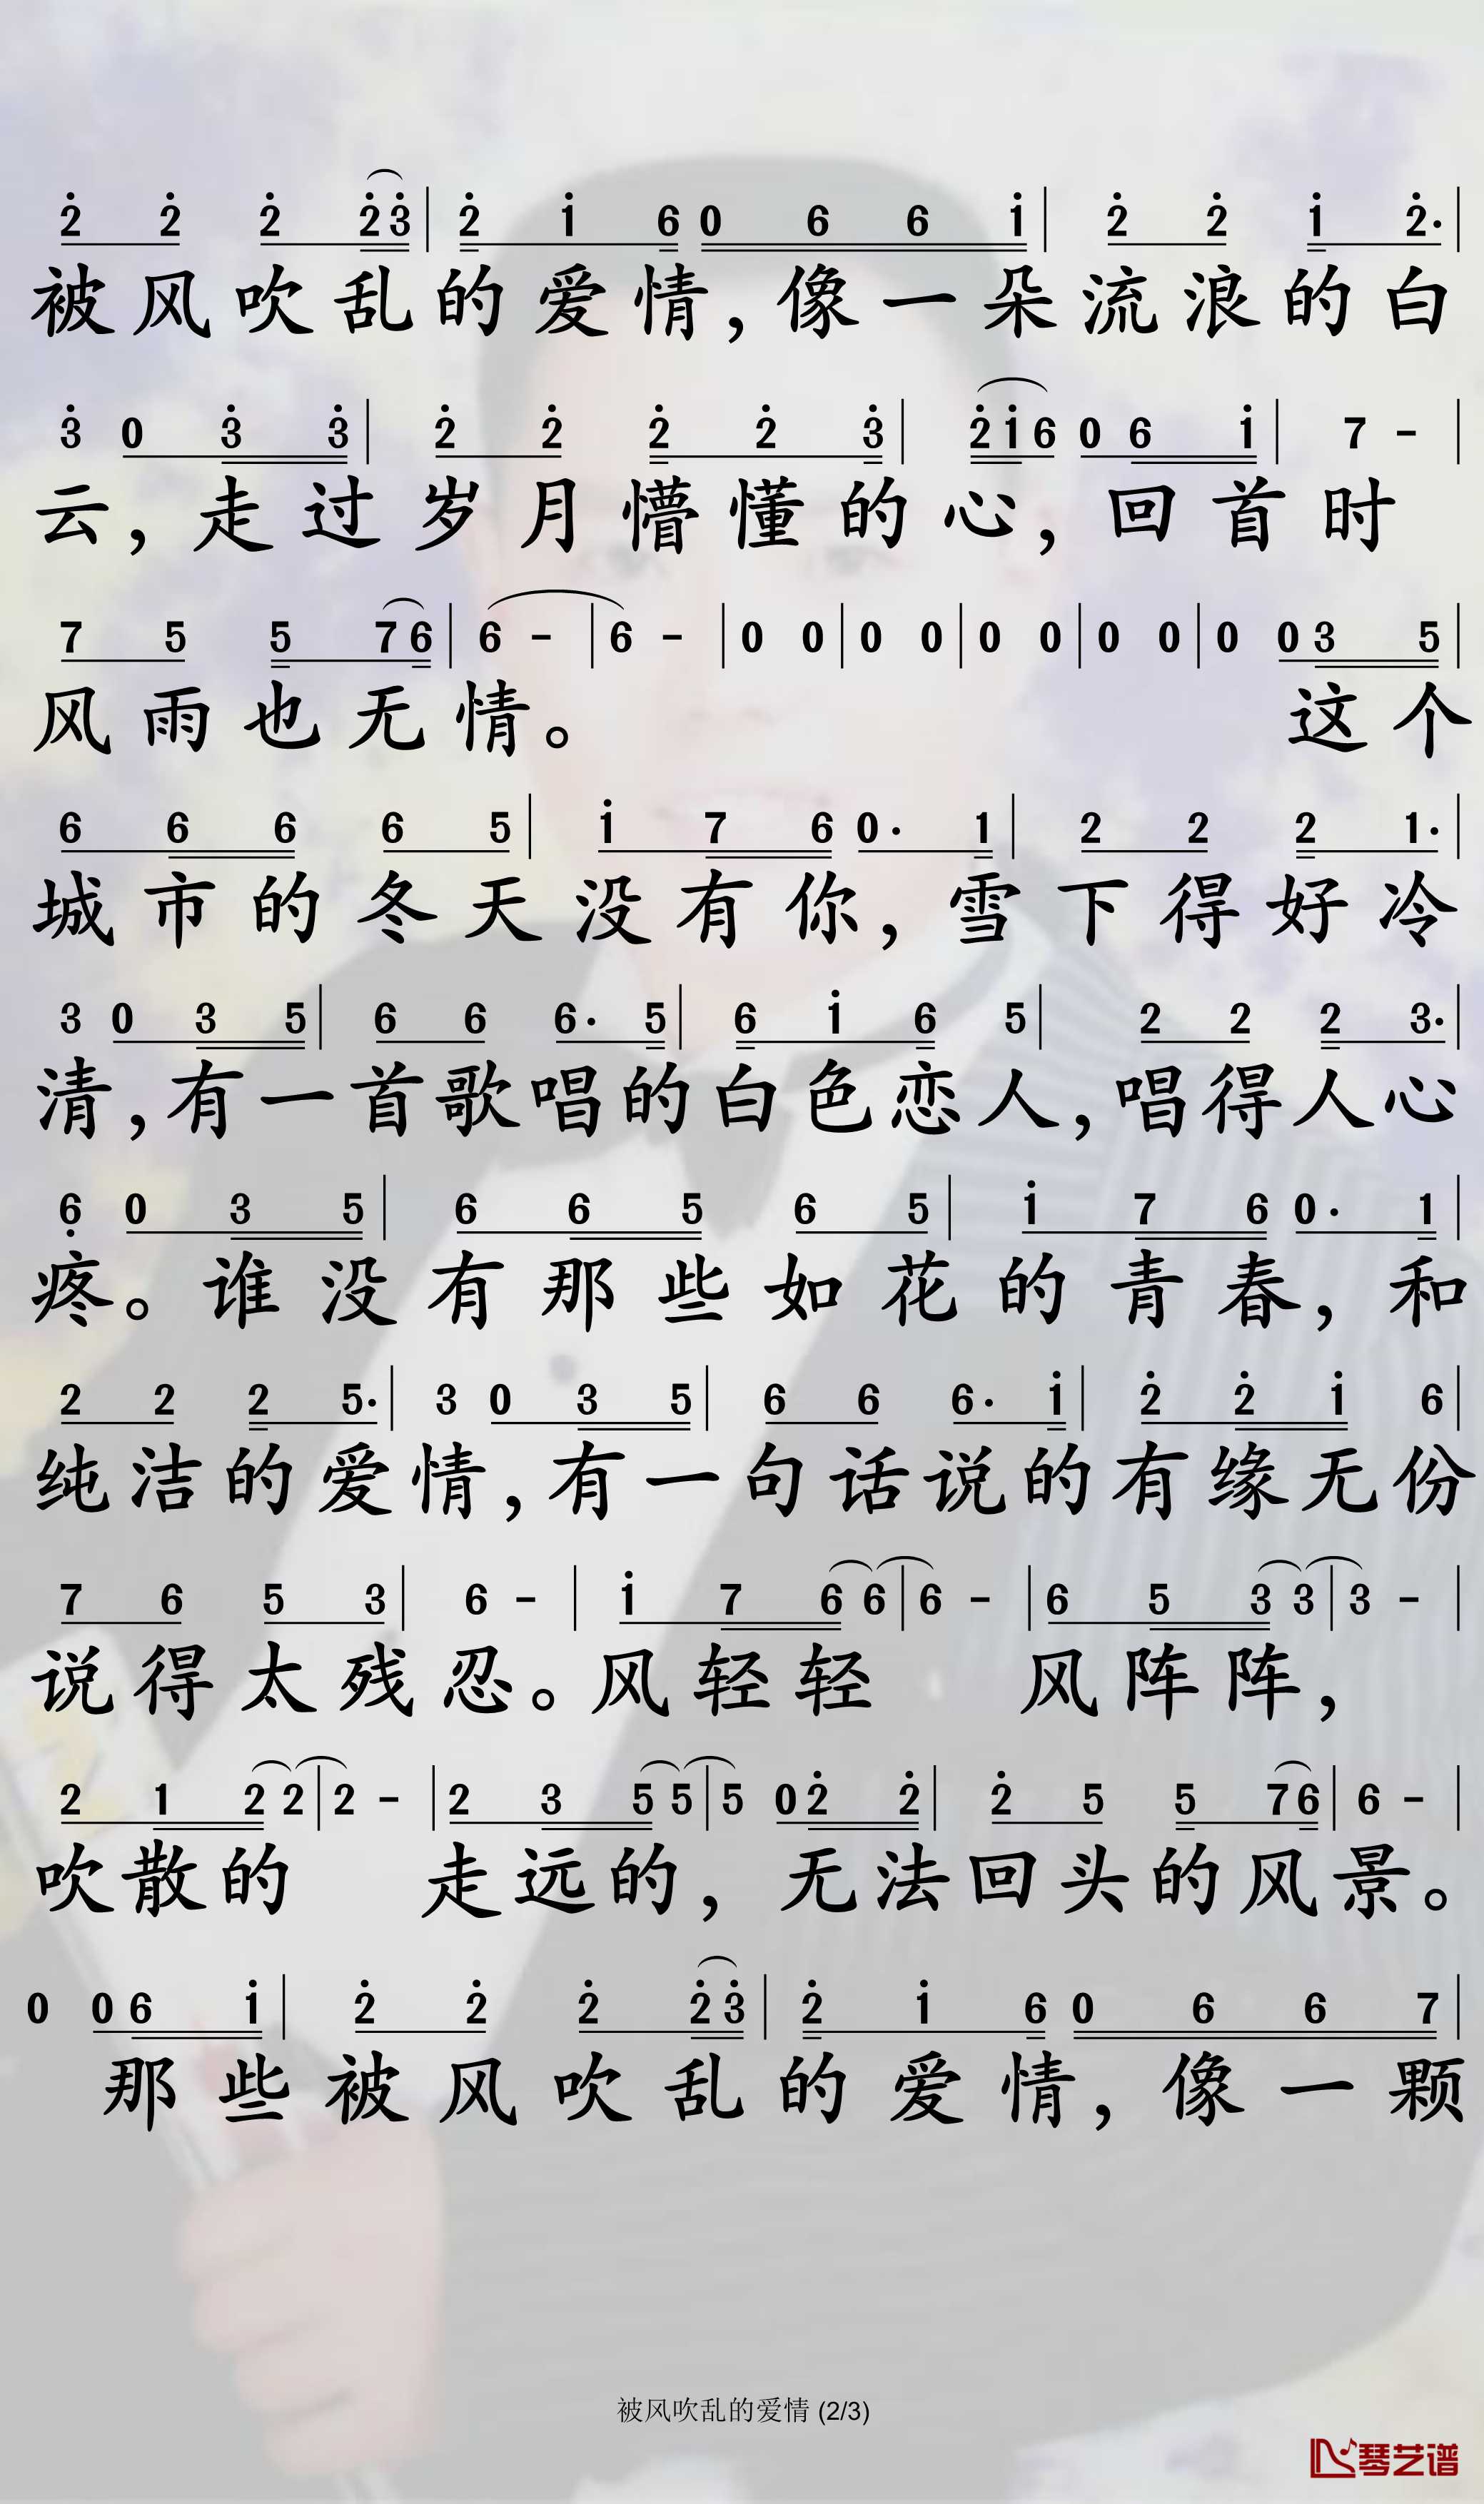 2 2 2 2 3 | 2 1 6 0 6 6 1 | 2 2 1 2· |
被风吹乱的爱情，像一朵流浪的白
3 0 3 3 | 2 2 2 2 3 | 2 1 6 0 6 1 | 7 - |
云，走过岁月懵懂的心，回首时
7 5 5 7 6 | 6 - | 6 - | 0 0 | 0 0 | 0 0 | 0 0 | 0 0 3 5 |
风雨也无情。 这个
6 6 6 6 5 | 1 7 6 0· 1 | 2 2 2 1· |
城市的冬天没有你，雪下得好冷
3 0 3 5 | 6 6 6· 5 | 6 1 6 5 | 2 2 2 3· |
清，有一首歌唱的白色恋人，唱得人心
6 0 3 5 | 6 6 5 6 5 | 1 7 6 0· 1 |
疼。谁没有那些如花的青春，和
2 2 2 5· | 3 0 3 5 | 6 6 6· 1 | 2 2 1 6 |
纯洁的爱情，有一句话说的有缘无份
7 6 5 3 | 6 - | 1 7 6 6 | 6 - | 6 5 3 3 | 3 - |
说得太残忍。风轻轻 风阵阵，
2 1 2 2 | 2 - | 2 3 5 5 | 5 0 2 2 | 2 5 5 7 6 | 6 - |
吹散的 走远的，无法回头的风景。
0 0 6 1 | 2 2 2 2 3 | 2 1 6 0 6 6 7 |
那些被风吹乱的爱情，像一颗
被风吹乱的爱情 (2/3)
琴艺谱